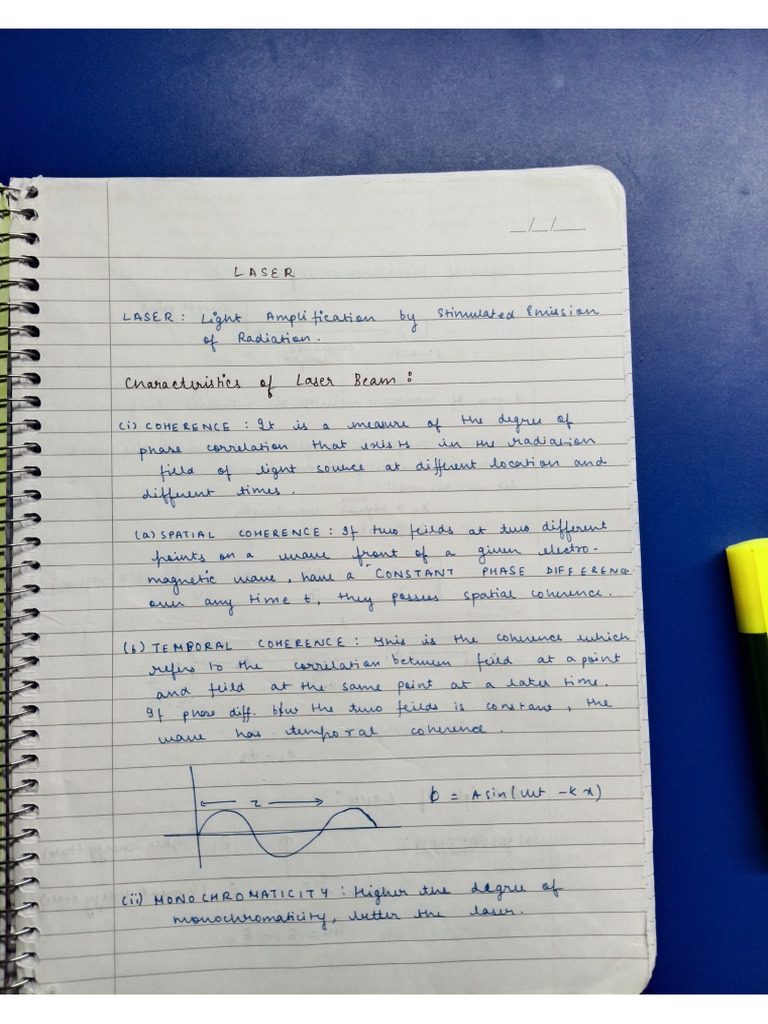 _/_/__
LASER
LASER : Light Amplification by Stimulated Emission
of Radiation.
Characteristics of Laser Beam :
(i) COHERENCE : It is a measure of the degree of
phase correlation that exists in the radiation
field of light source at different location and
different times.
(a) SPATIAL COHERENCE : If two feilds at two different
points on a wave front of a given electro-
magnetic wave, have a CONSTANT PHASE DIFFERENCE
over any time t, they posses spatial coherence.
(b) TEMPORAL COHERENCE : This is the coherence which
refers to the correlation between feild at a point
and feild at the same point at a later time.
If phase diff. b/w the two feilds is constant, the
wave has temporal coherence.
= A sin(wt - kx)
(ii) MONOCHROMATICITY : Higher the degree of
monochromaticity, better the laser.